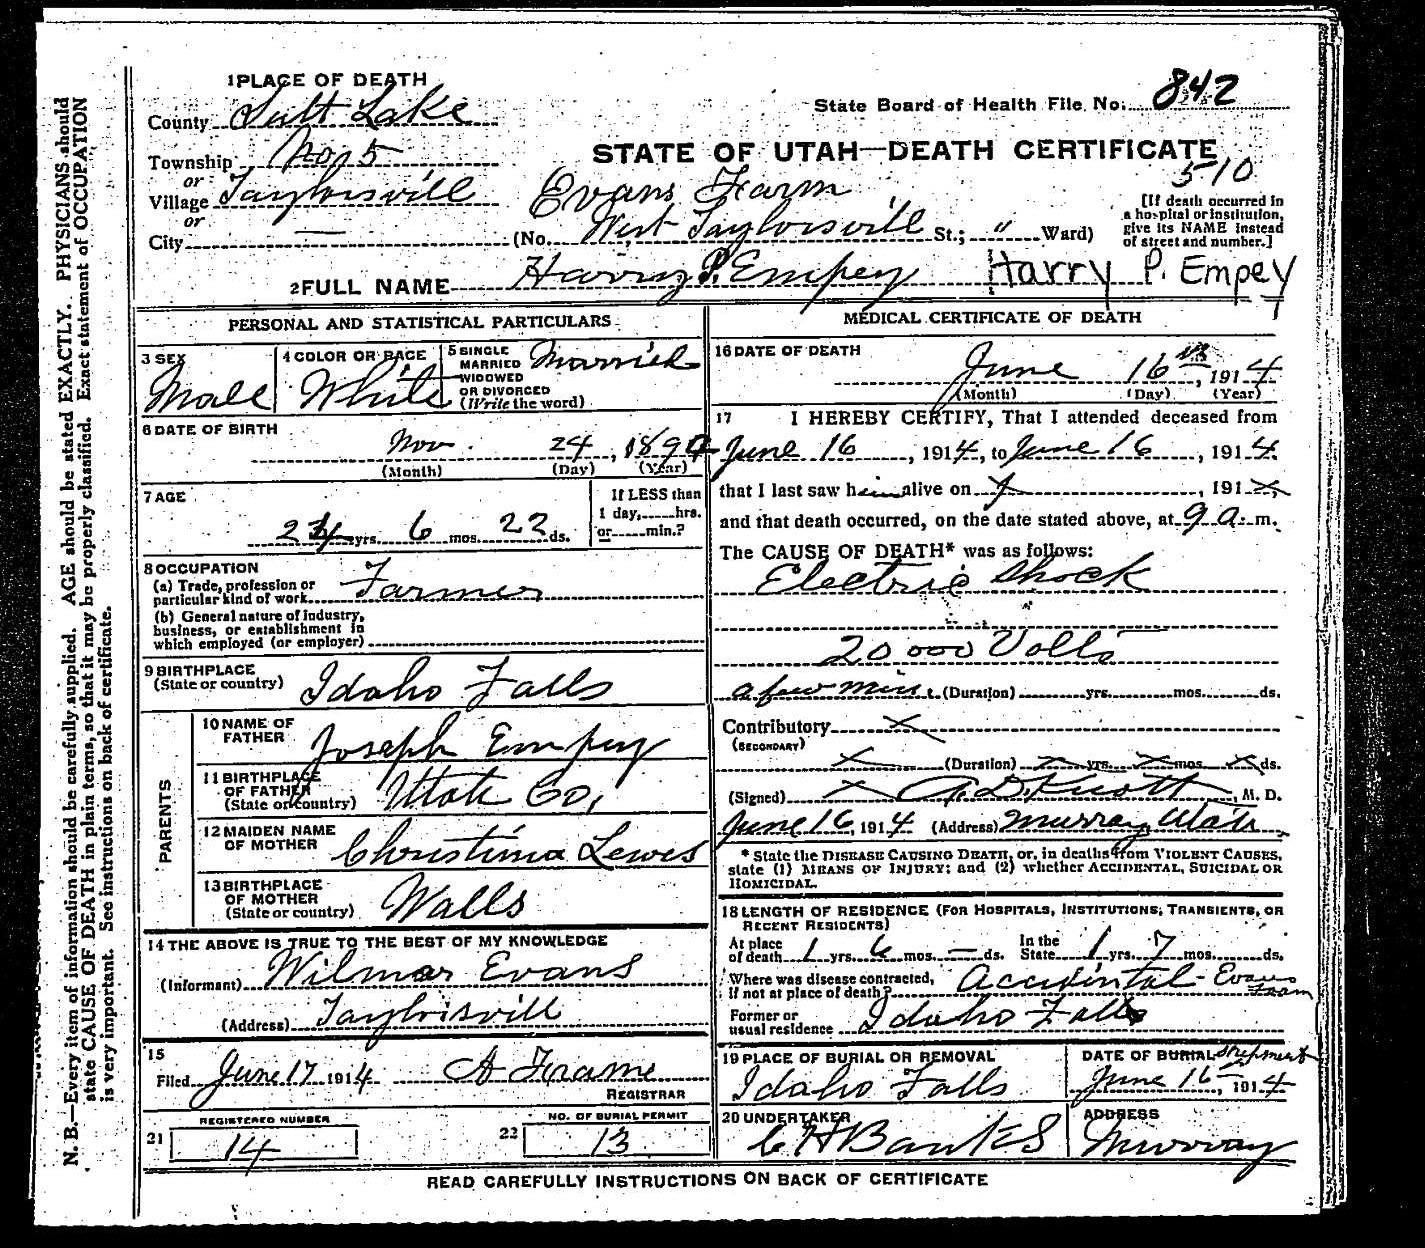 1 PLACE OF DEATH
State Board of Health File No. 842
County Salt Lake
Township No. 5
or
Village Taylorsvill
or
City —
STATE OF UTAH—DEATH CERTIFICATE
510
Evans Farm
(No. West Taylorsvill St.; " Ward)
[If death occurred in
a hospital or institution,
give its NAME instead
of street and number.]
2 FULL NAME Harry P. Empey Harry P. Empey
PERSONAL AND STATISTICAL PARTICULARS
3 SEX
Male
4 COLOR OR RACE
White
5 SINGLE
MARRIED
WIDOWED
OR DIVORCED
(Write the word)
Married
6 DATE OF BIRTH
Nov. 24, 189
(Month) (Day) (Year)
7 AGE
yrs. 6 mos. 22 ds.
If LESS than
1 day, hrs.
or min.?
8 OCCUPATION
(a) Trade, profession or
particular kind of work Farmer
(b) General nature of industry,
business, or establishment in
which employed (or employer)
9 BIRTHPLACE
(State or country) Idaho Falls
PARENTS
10 NAME OF
FATHER Joseph Empey
11 BIRTHPLACE
OF FATHER
(State or country) Utah Co.
12 MAIDEN NAME
OF MOTHER Christina Lewes
13 BIRTHPLACE
OF MOTHER
(State or country) Walls
14 THE ABOVE IS TRUE TO THE BEST OF MY KNOWLEDGE
(Informant) Wilmar Evans
(Address) Taylorisvill
15
Filed June 17 1914 A Frame
REGISTRAR
REGISTERED NUMBER
21 14
NO. OF BURIAL PERMIT
22 13
MEDICAL CERTIFICATE OF DEATH
16 DATE OF DEATH
June 16, 1914
(Month) (Day) (Year)
17 I HEREBY CERTIFY, That I attended deceased from
June 16, 1914, to June 16, 1914.
that I last saw him alive on x, 191x,
and that death occurred, on the date stated above, at 9 a. m.
The CAUSE OF DEATH* was as follows:
Electric shock
20 000 Volts
a few min. (Duration) yrs. mos. ds.
Contributory x
(SECONDARY)
x (Duration) x yrs. x mos. x ds.
(Signed) x A. D. Knott, M. D.
June 16, 1914 (Address) Murray Utah
* State the DISEASE CAUSING DEATH, or, in deaths from VIOLENT CAUSES,
state (1) MEANS OF INJURY; and (2) whether ACCIDENTAL, SUICIDAL OR
HOMICIDAL.
18 LENGTH OF RESIDENCE (FOR HOSPITALS, INSTITUTIONS, TRANSIENTS, OR
RECENT RESIDENTS)
At place
of death 1 yrs. 6 mos. — ds.
In the
State 1 yrs. 7 mos. ds.
Where was disease contracted,
if not at place of death? Accidintal - Evans Fram
Former or
usual residence Idaho Falls
19 PLACE OF BURIAL OR REMOVAL
Idaho Falls
DATE OF BURIAL shipment
June 16, 1914
20 UNDERTAKER
C H Banks
ADDRESS
Murray
READ CAREFULLY INSTRUCTIONS ON BACK OF CERTIFICATE
N. B.—Every item of information should be carefully supplied. AGE should be stated EXACTLY. PHYSICIANS should
state CAUSE OF DEATH in plain terms, so that it may be properly classified. Exact statement of OCCUPATION
is very important. See instructions on back of certificate.